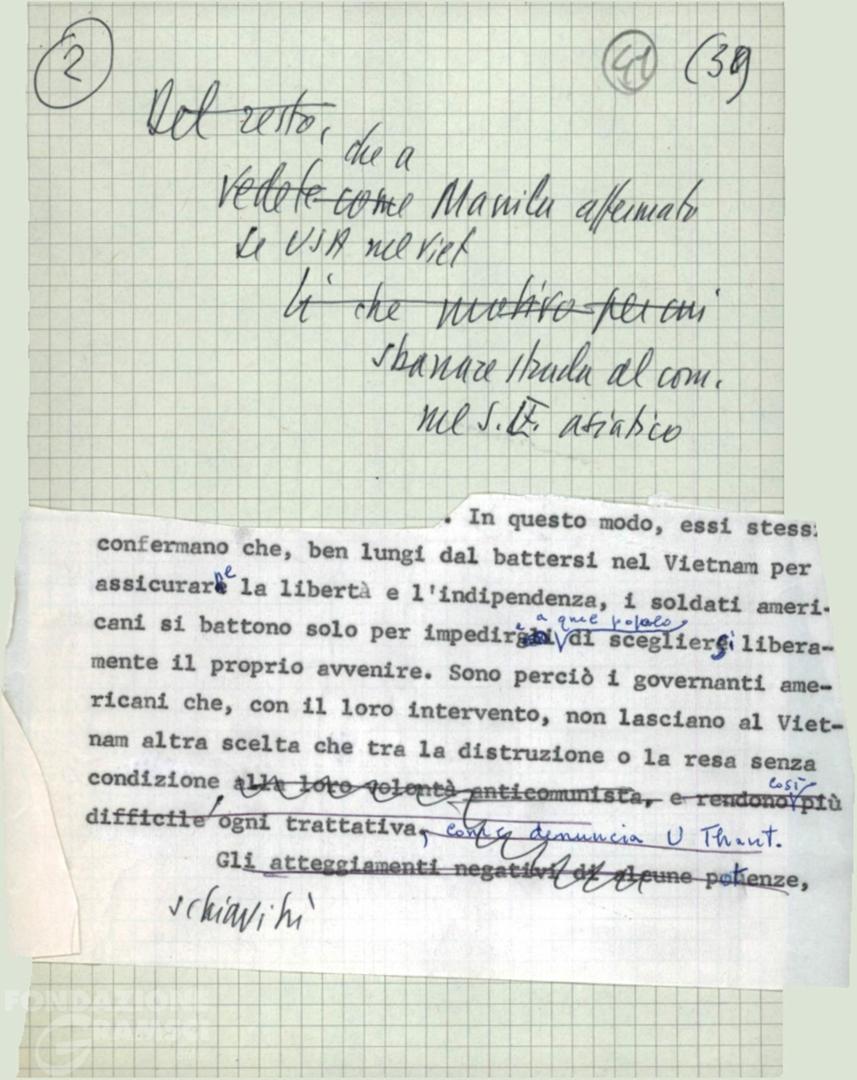 2 41 (39)
Del resto,
che a
vedete come Manila affermato
se USA nel Viet
lì che motivo per cui
sbarrare strada al com.
nel S.E. asiatico
. In questo modo, essi stessi
confermano che, ben lungi dal battersi nel Vietnam per
assicurare la libertà e l'indipendenza, i soldati ameri-
a quel popolo
cani si battono solo per impedire di scegliersi libera-
mente il proprio avvenire. Sono perciò i governanti ame-
ricani che, con il loro intervento, non lasciano al Viet-
nam altra scelta che tra la distruzione o la resa senza
così
condizione alla loro volontà anticomunista, e rendono più
difficile ogni trattativa, come denuncia U Thant.
Gli atteggiamenti negativi di alcune potenze,
schiavitù
FONDAZIONE
GRAMSCI